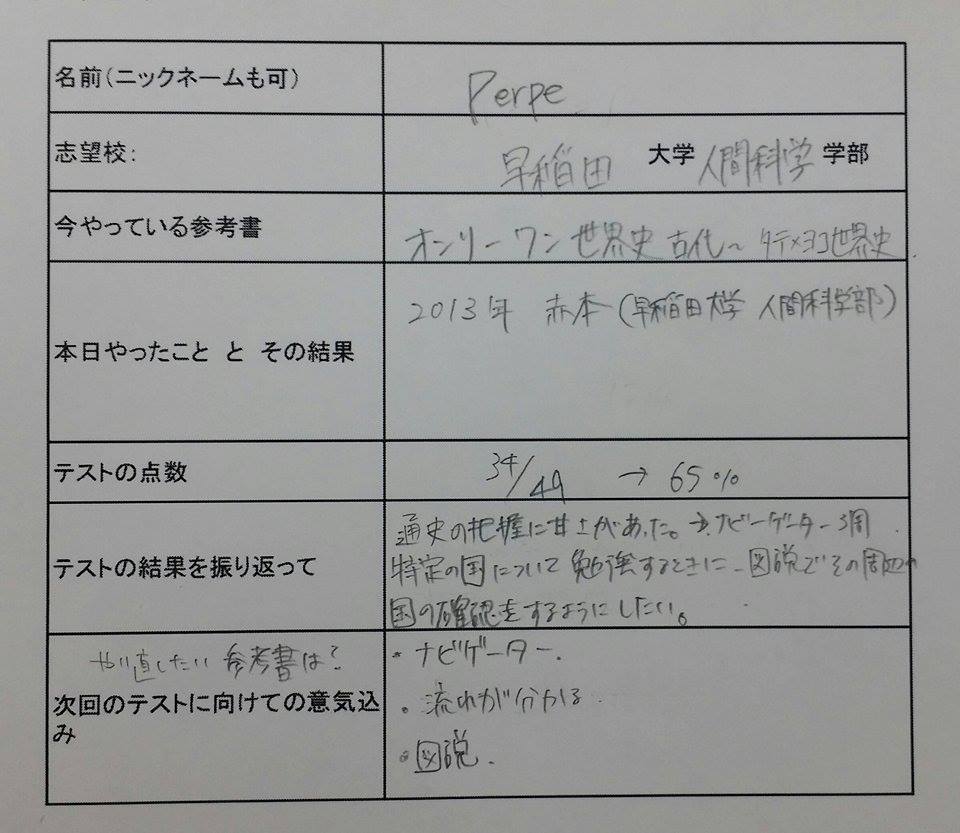 名前(ニックネームも可)
Perpe
志望校:
早稲田 大学 人間科学 学部
今やっている参考書
オンリーワン世界史 古代〜 タテ×ヨコ世界史
本日やったこと と その結果
2013年 赤本(早稲田大学 人間科学部)
テストの点数
34/49 → 65%
テストの結果を振り返って
通史の把握に甘さがあった。→ナビーゲーター3周
特定の国について勉強するときに、図説でその周辺の
国の確認をするようにしたい。
やり直したい参考書は?
次回のテストに向けての意気込
み
・ナビゲーター.
・流れが分かる
・図説.